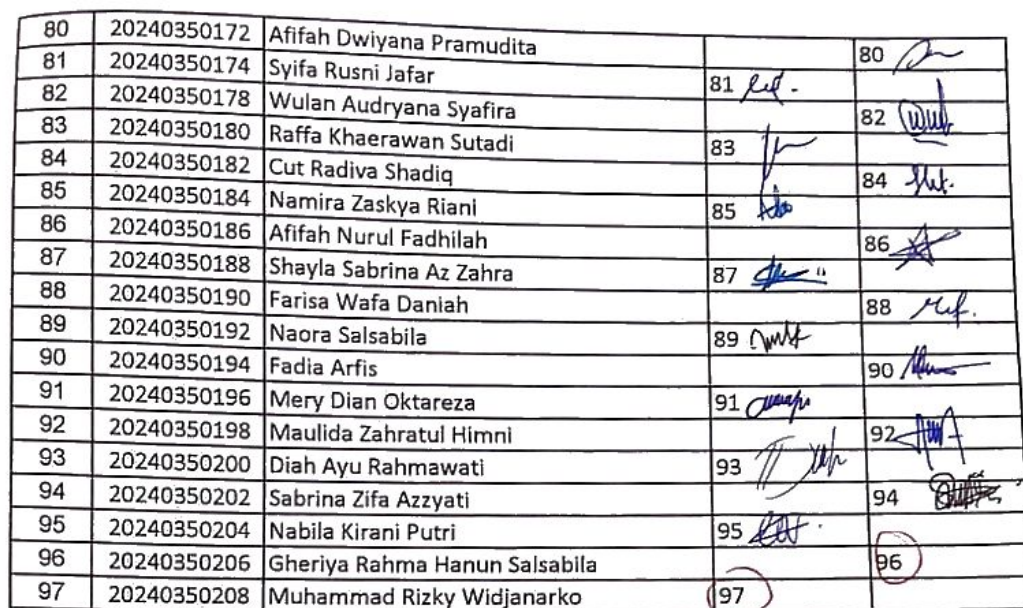 80 20240350172 Afifah Dwiyana Pramudita 80
81 20240350174 Syifa Rusni Jafar 81
82 20240350178 Wulan Audryana Syafira 82
83 20240350180 Raffa Khaerawan Sutadi 83
84 20240350182 Cut Radiva Shadiq 84
85 20240350184 Namira Zaskya Riani 85
86 20240350186 Afifah Nurul Fadhilah 86
87 20240350188 Shayla Sabrina Az Zahra 87
88 20240350190 Farisa Wafa Daniah 88
89 20240350192 Naora Salsabila 89
90 20240350194 Fadia Arfis 90
91 20240350196 Mery Dian Oktareza 91
92 20240350198 Maulida Zahratul Himni 92
93 20240350200 Diah Ayu Rahmawati 93
94 20240350202 Sabrina Zifa Azzyati 94
95 20240350204 Nabila Kirani Putri 95
96 20240350206 Gheriya Rahma Hanun Salsabila 96
97 20240350208 Muhammad Rizky Widjanarko 97